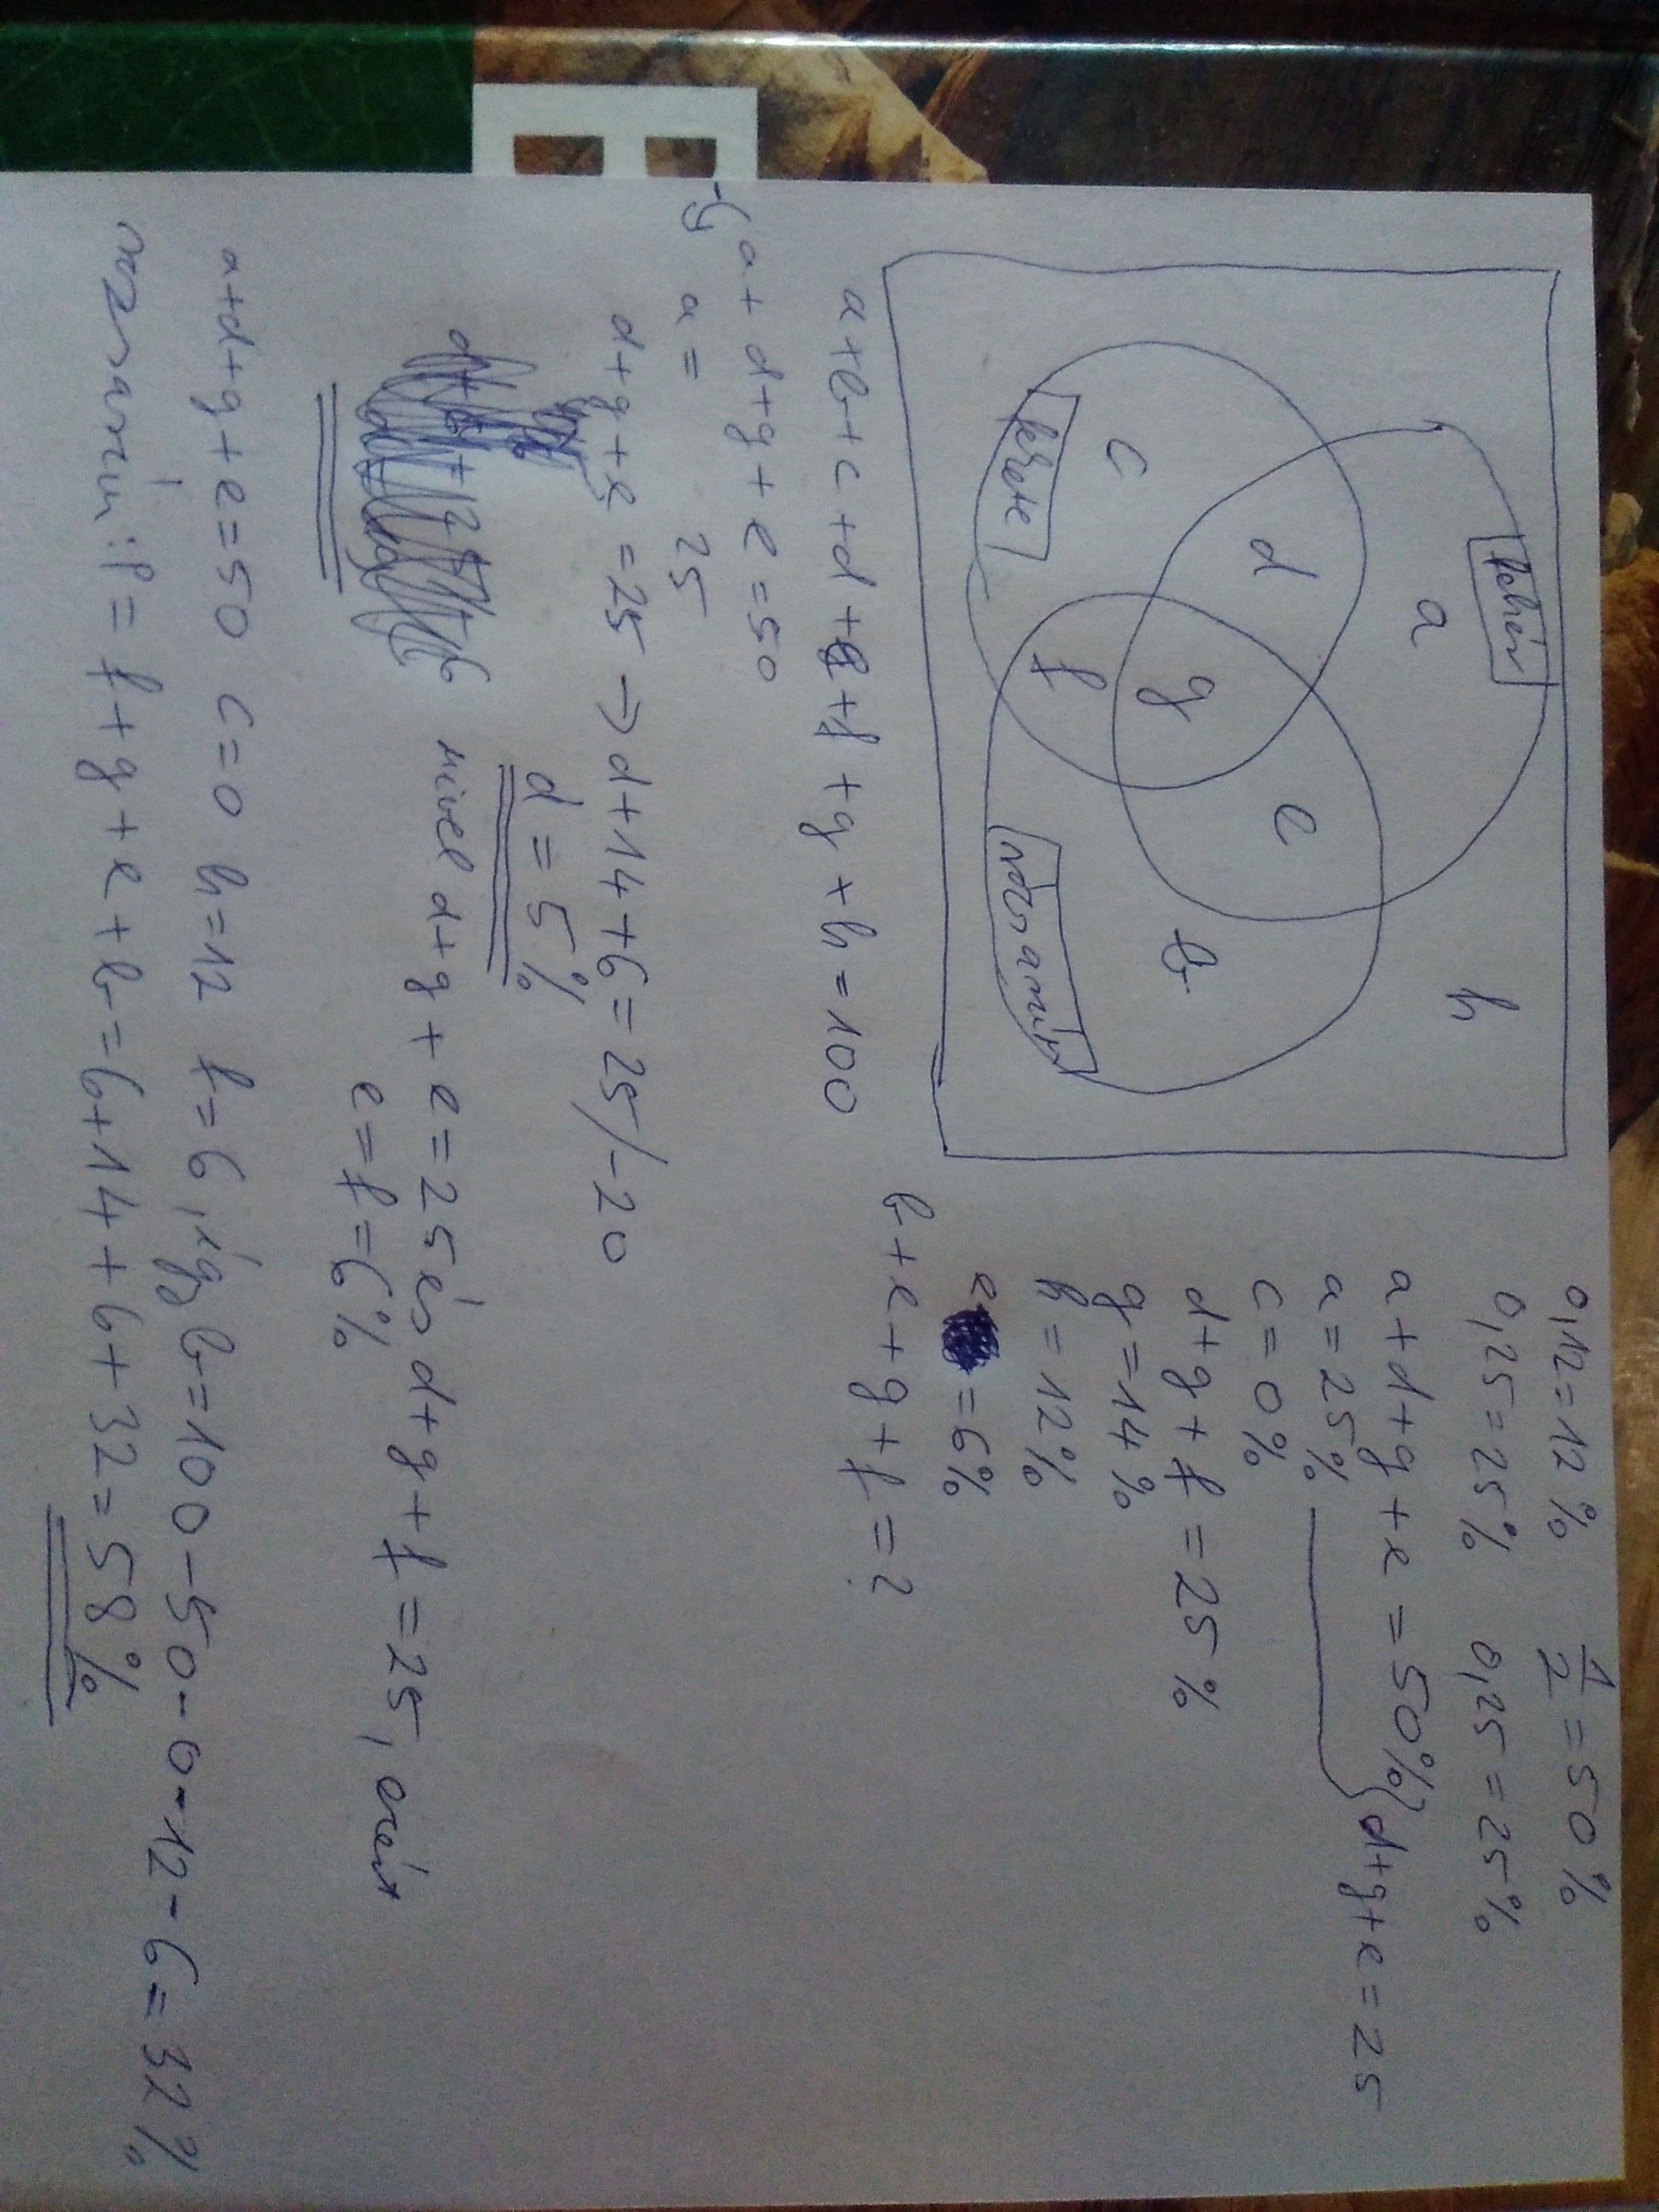 0,12 = 12% 1/2 = 50%
0,25 = 25% 0,25 = 25%
fehér
a
h
c
d
e
g
b
f
fekete
a + d + g + e = 50% } d + g + e = 25
a = 25%
c = 0%
d + g + f = 25%
g = 14%
h = 12%
e = 6%
b + e + g + f = ?
a + b + c + d + e + f + g + h = 100
a + d + g + e = 50
a = 25
d + g + e = 25 → d + 14 + 6 = 25 /-20
d = 5%
mivel d + g + e = 25 és d + g + f = 25, ezért
e = f = 6%
a + d + g + e = 50 c = 0 h = 12 f = 6, így b = 100 - 50 - 0 - 12 - 6 = 32%
: P = f + g + e + b = 6 + 14 + 6 + 32 = 58%